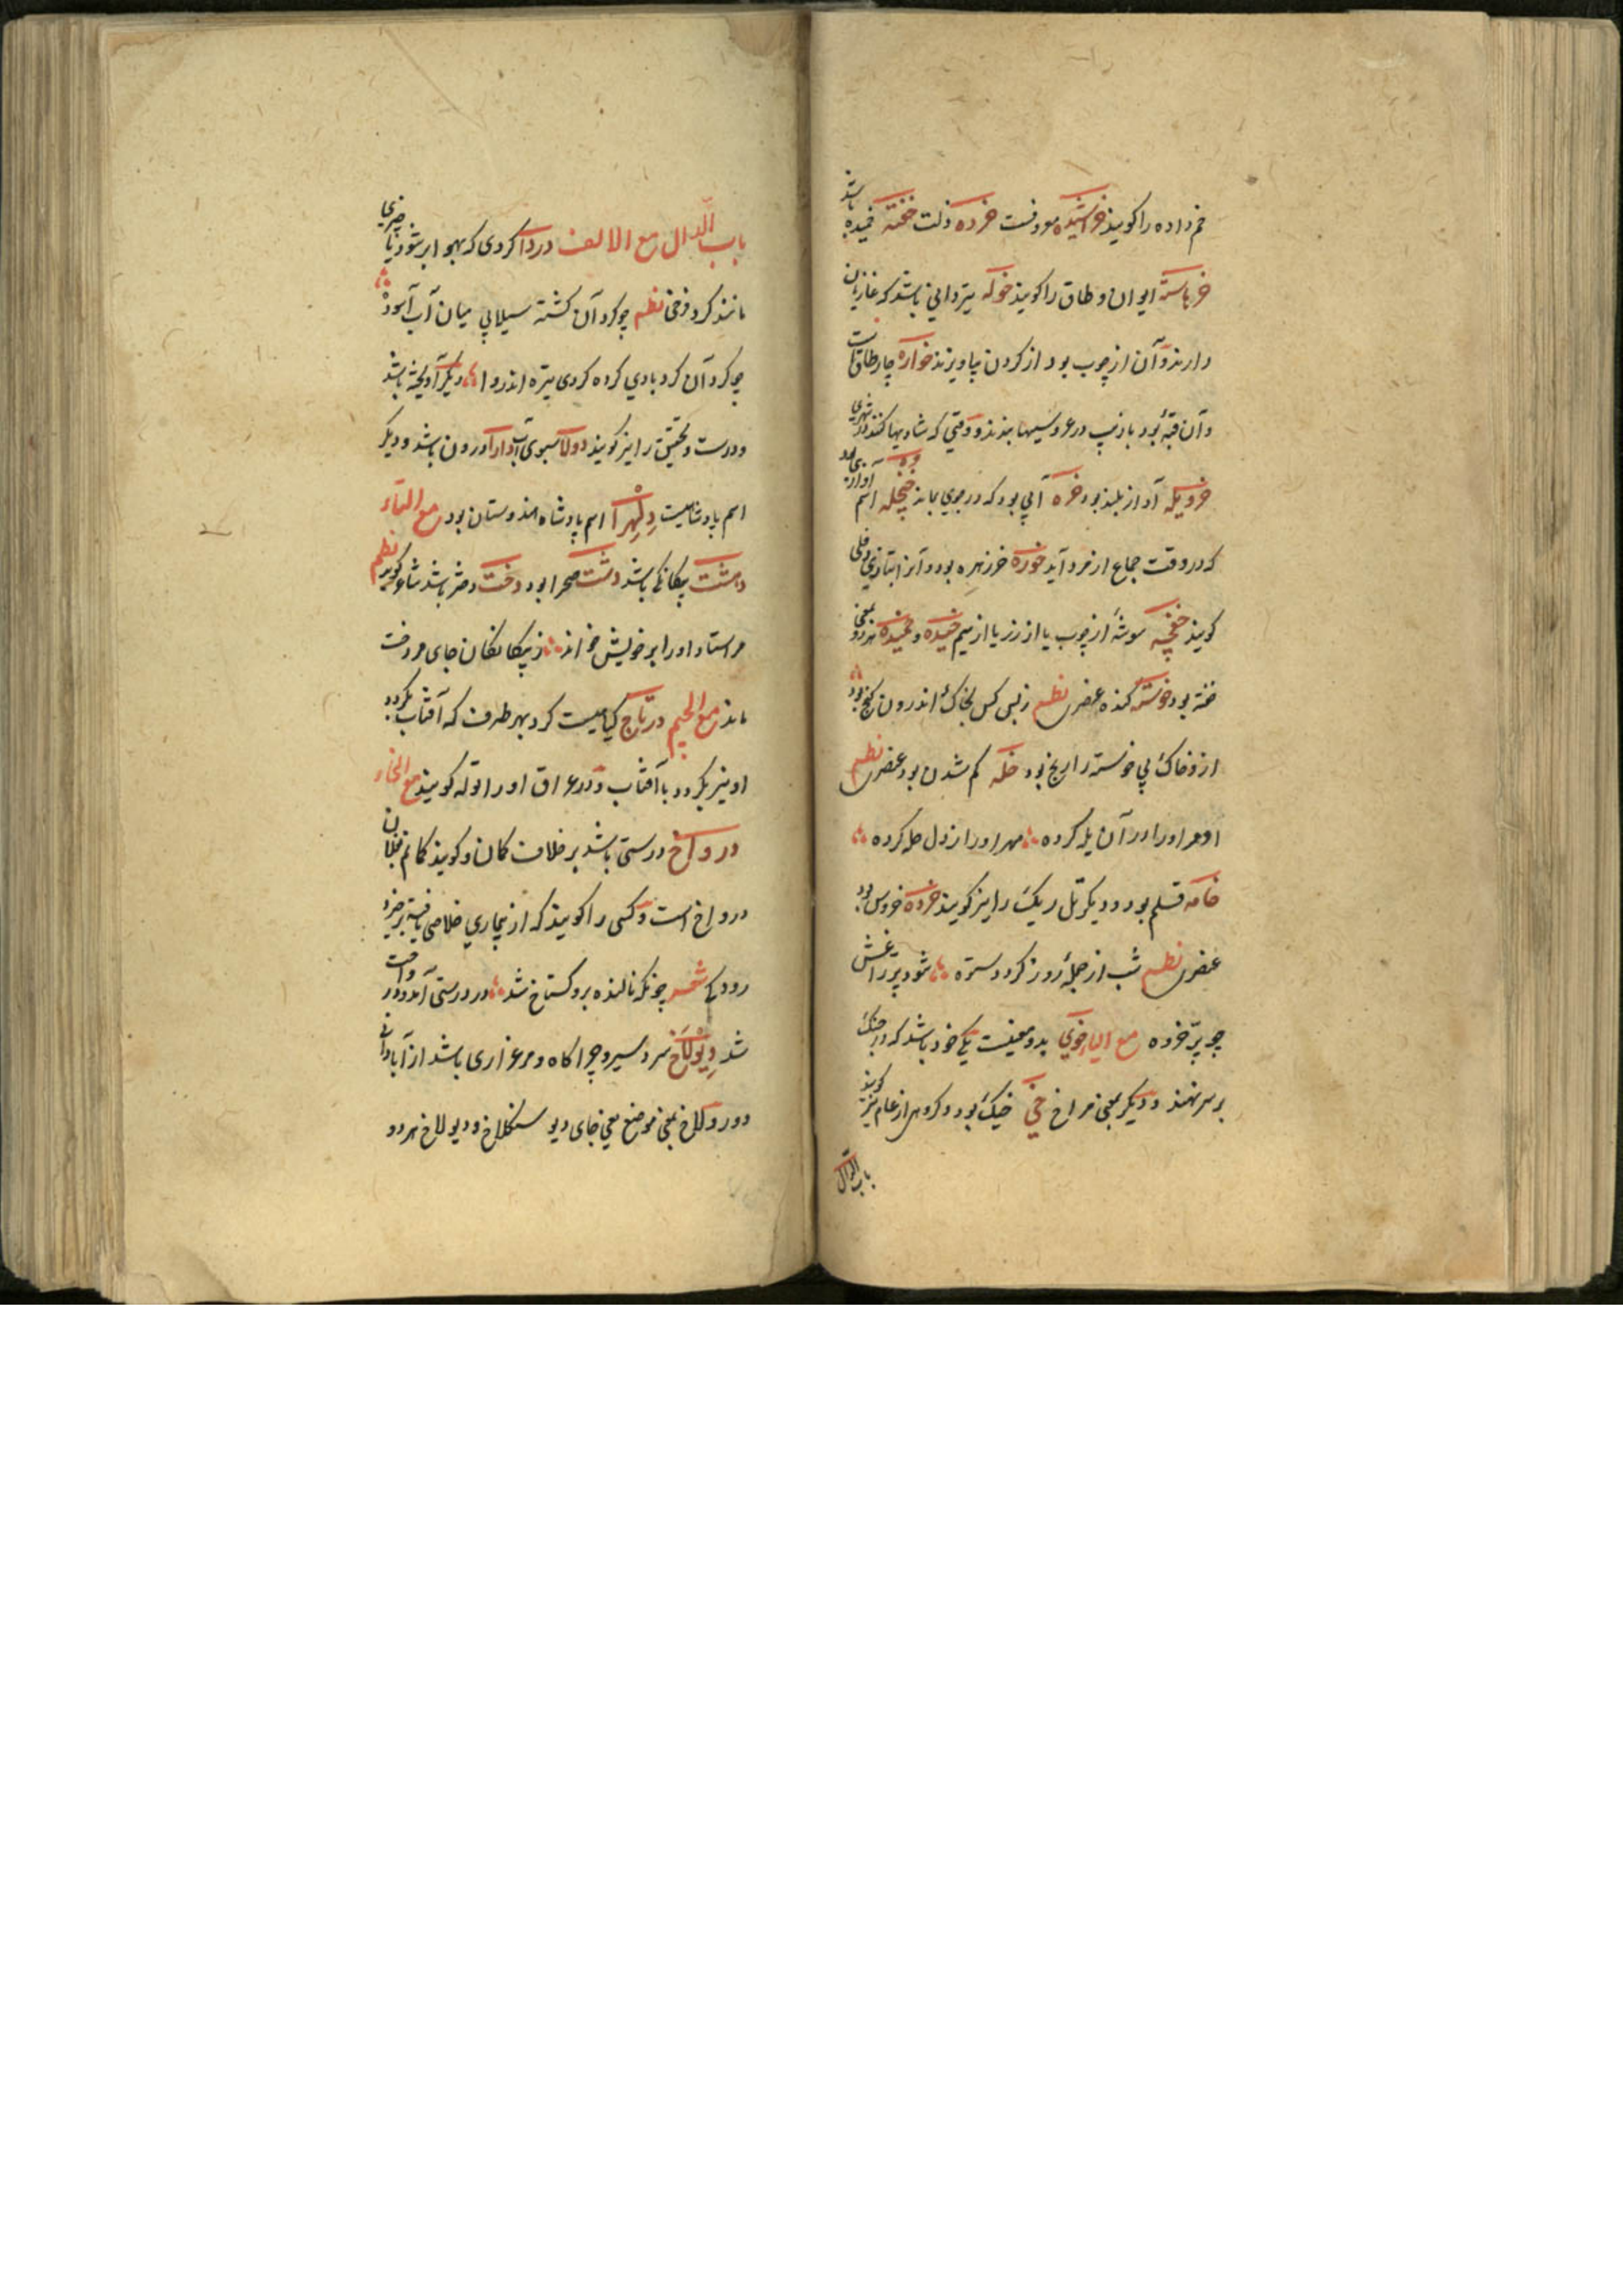 خم داده را کویند خراشیده معروفست خرده ذلت خفته خمیده باشد
خرباسته ایوان و طاق را کویند خوکه تیردانی باشد که غازیان
دارند و آن از چوب بود از کردن بیاویزند خوازه چارطاقست
و آن قبهٔ بود بازیب در عروسیها بندند و وقتی که شادیها کنند در شهری
خرویله آواز بلند بود خره آبی بود که در جوی بماند خنجله اسم آواز
که در وقت جماع از مرد آید خوزه خرزهره بود و آنرا بتازی دفلی
کویند خفچه شوشهٔ از چوب یا از زر یا از سیم خمیده و چمیده هردو بمعنی
خفته بود خوسته کنده عنصری نظم ز بس کس بخاک اندرون کنج بود
ازو خاک پی خوسته را رنج بود خله کم شدن بود عنصری نظم
او مر او را در آن یله کرده مهر او را ز دل خله کرده
خامه قلم بود و دیکر تل ریک را نیز کویند خروه خروس بود
عنصری نظم شب از حملهٔ روز کردد ستوه شود پر زاغش
چو پر خروه مع الیاء خوی بدو معنیست یکی خود باشد که در جنک
بر سر نهند و دیکر بمعنی فراخ خی خیک بود و کروهی از عام نیز کویند
باب الدال
باب الدال مع الالف دردا کردی که بهوا بر شود یا چیزی
مانند کرد فرخی نظم چو کردان کشته سیلابی میان آب آسوده
چو کردان کردبادی کرده کردی تیره اندروا دیکر آویخته باشد
و درست و تحقیق را نیز کویند دولا سبوی آب دارا درون باشد و دیکر
اسم پادشاهیست دلهرا اسم پادشاه هندوستان بود مع التاء
دشت صحرا بود دخت دختر باشد شاعر کوید نظم
مر استاد او را بر خویش خواند ز بیکانکان جای مردخت
ماند مع الجیم درتاج کیاهیست کرد بهر طرف که آفتاب بکردد
او نیز بکردد با آفتاب و در عراق او را توله کویند مع الخاء
درواخ درستی باشد بر خلاف کمان و کویند کمانم بفلان
درواخ است و کسی را کویند که از بیماری خلاصی یافته برخیزد
رودکی شعر چونکه نالنده برو کستاخ شد در درستی آمد و درواخ
شد دیولاخ سردسیر و چراکاه و مرغزاری باشد از آبادانی
دور و لاخ بمعنی موضع یعنی جای دیو سنکلاخ و دیولاخ هردو